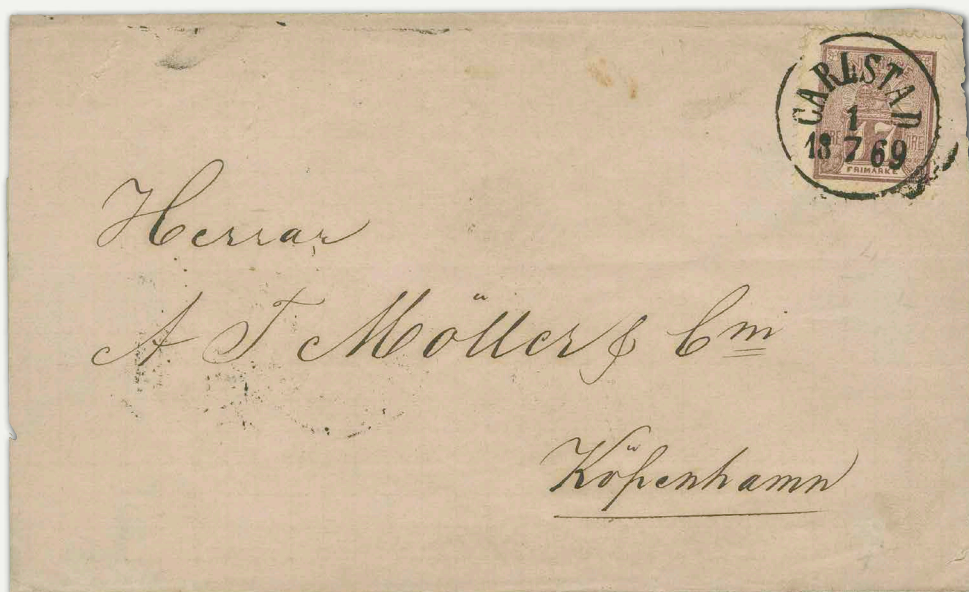 CARLSTAD
1
18 7 69
17
ÖRE
FRIMÄRKE
Herrar
A T Möller & Cm
Köpenhamn